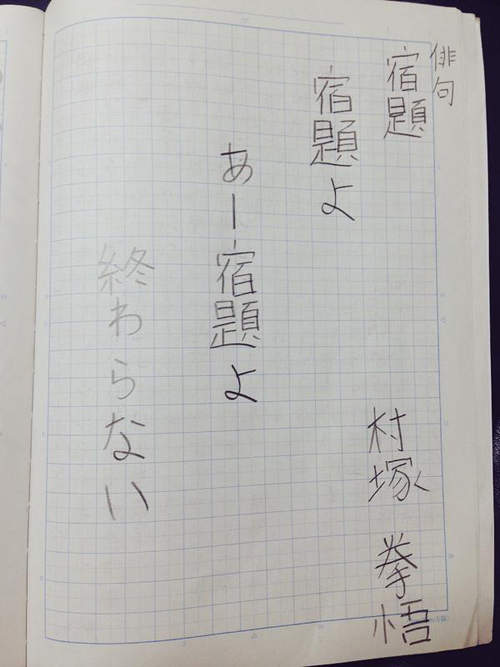 俳句
宿題
村塚 拳悟
宿題よ
あー宿題よ
終わらない